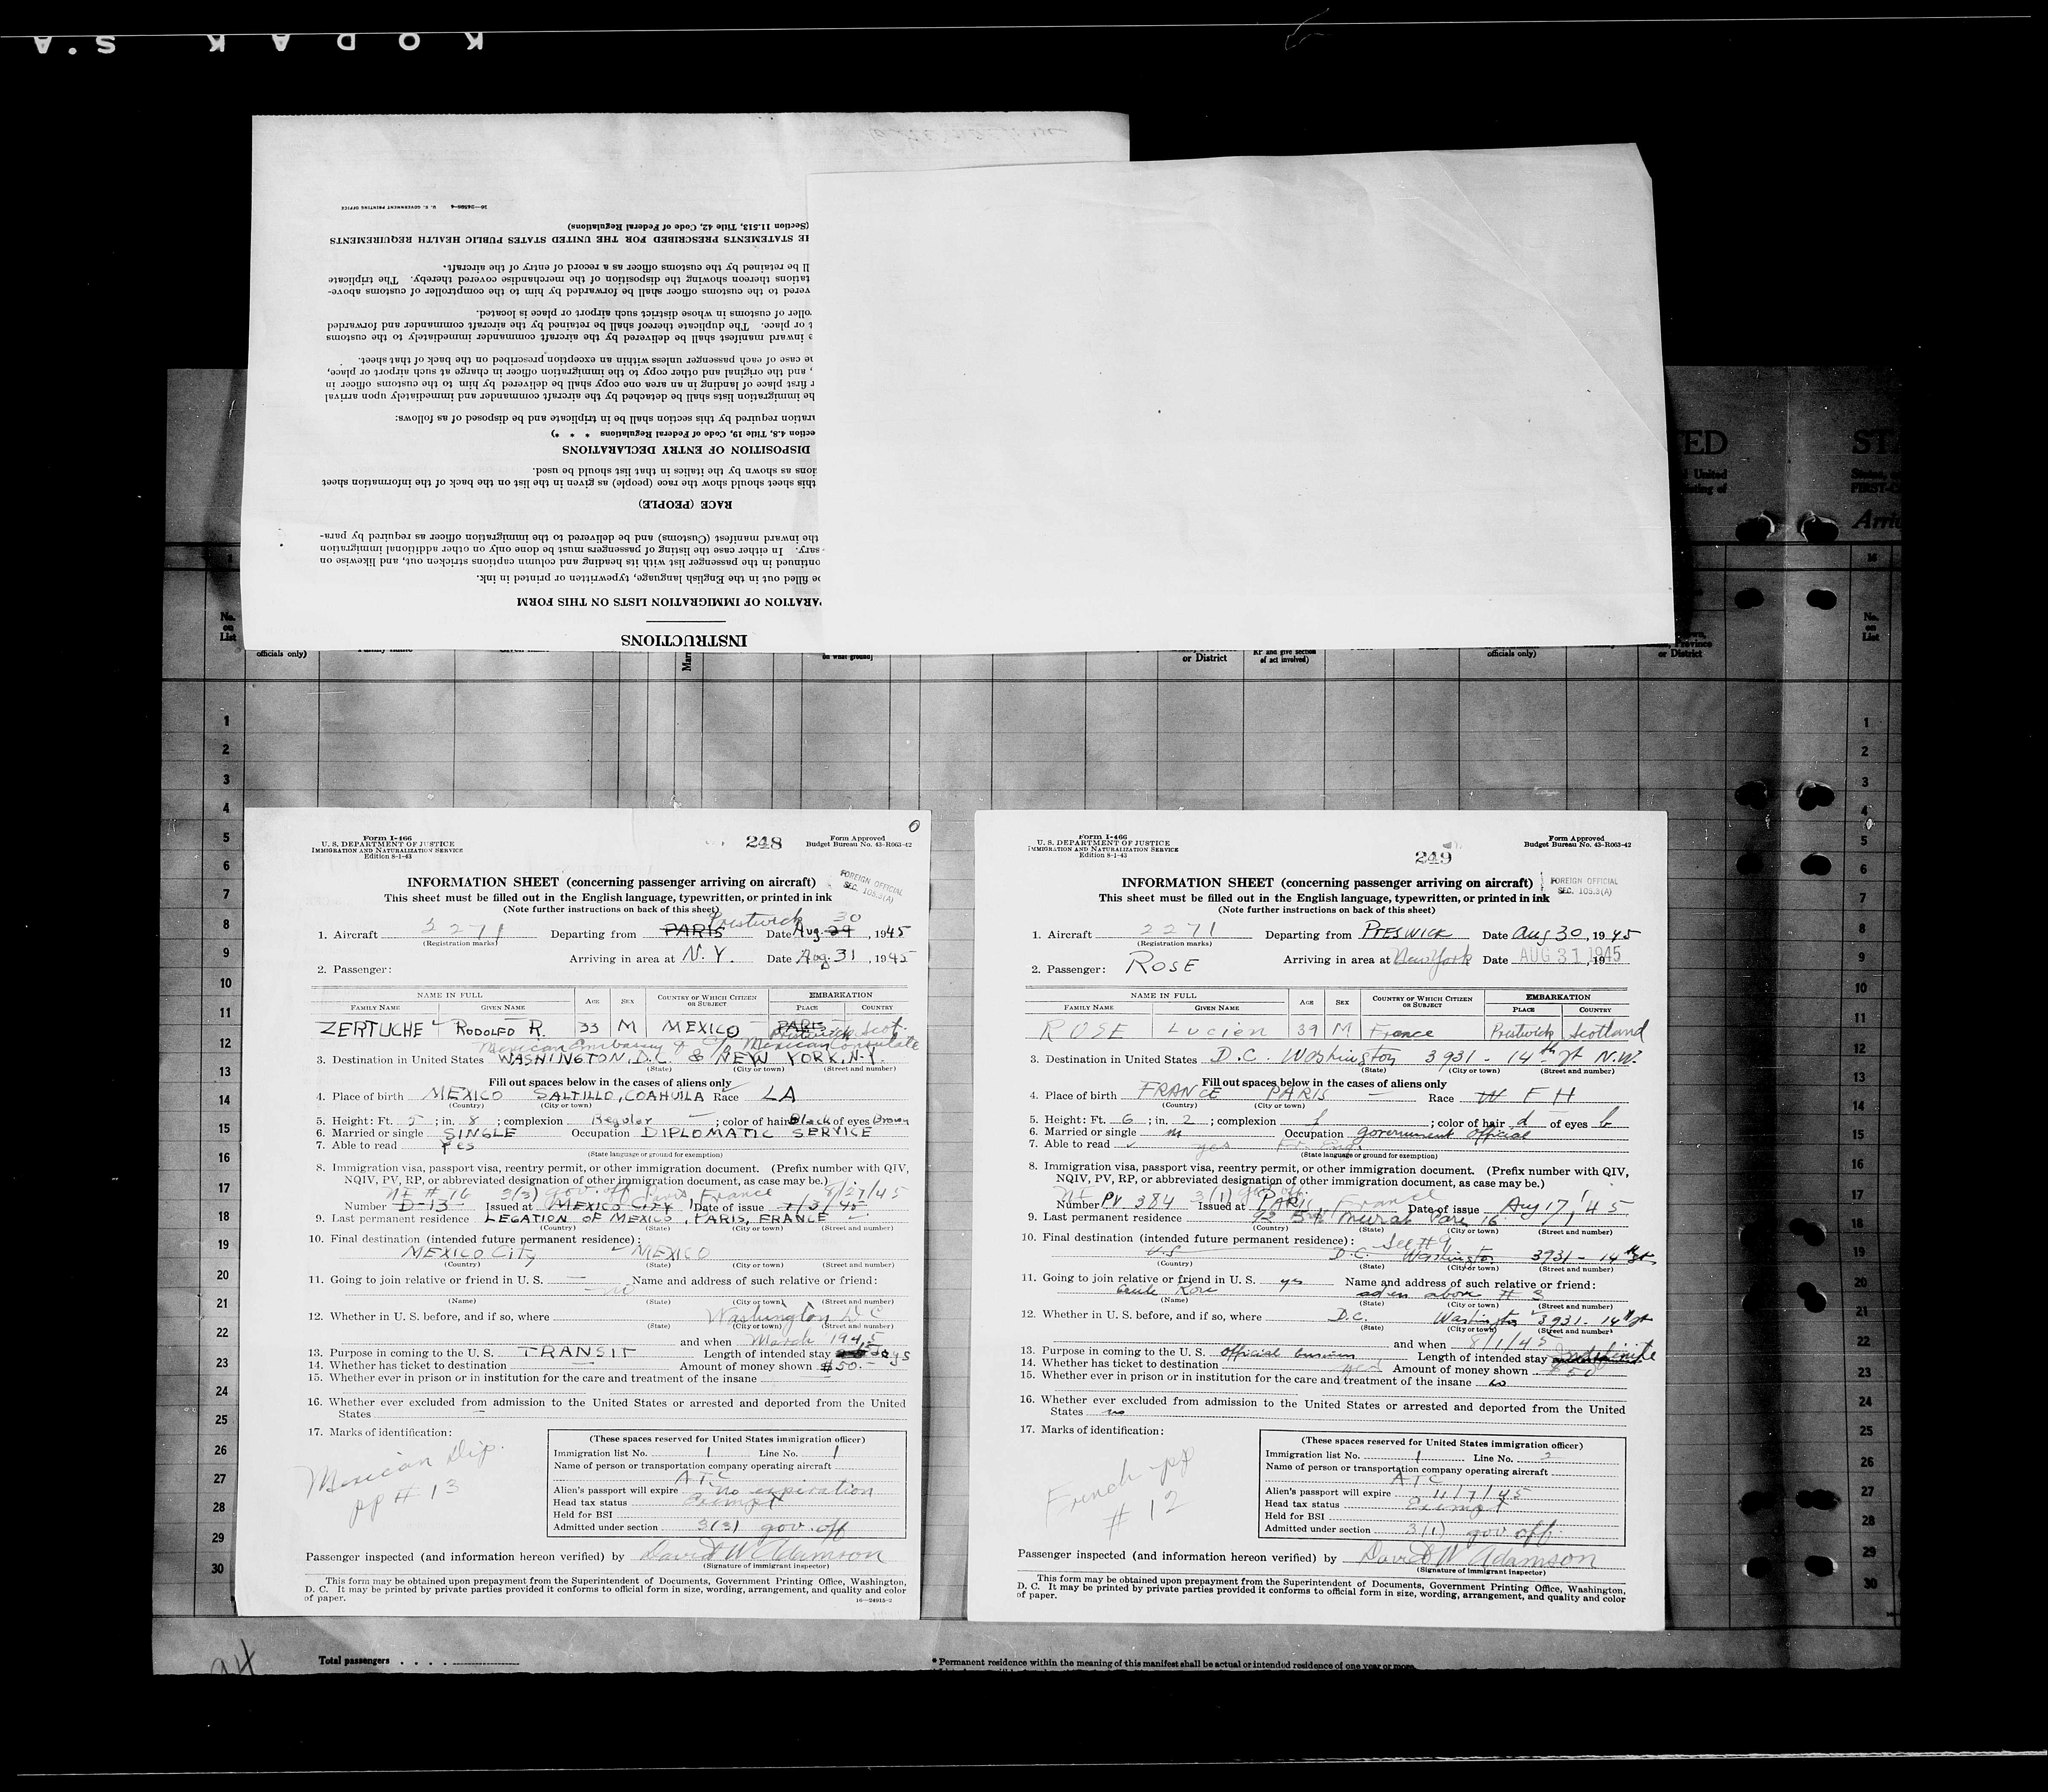 KODAK S.A
16—24596-4 U. S. GOVERNMENT PRINTING OFFICE
(Section 11.513, Title 42, Code of Federal Regulations)
HE STATEMENTS PRESCRIBED FOR THE UNITED STATES PUBLIC HEALTH REQUIREMENTS
ll be retained by the customs officer as a record of entry of the aircraft.
tations thereon showing the disposition of the merchandise covered thereby. The triplicate
vered to the customs officer shall be forwarded by him to the comptroller of customs above-
roller of customs in whose district such airport or place is located.
t or place. The duplicate thereof shall be retained by the aircraft commander and forwarded
e inward manifest shall be delivered by the aircraft commander immediately to the customs
he case of each passenger unless within an exception prescribed on the back of that sheet.
, and the original and other copy to the immigration officer in charge at such airport or place,
r first place of landing in an area one copy shall be delivered by him to the customs officer in
he immigration lists shall be detached by the aircraft commander and immediately upon arrival
aration required by this section shall be in triplicate and be disposed of as follows:
ection 4.8, Title 19, Code of Federal Regulations * * *)
DISPOSITION OF ENTRY DECLARATIONS
ions as shown by the italics in that list should be used.
this sheet should show the race (people) as given in the list on the back of the information sheet
RACE (PEOPLE)
the inward manifest (Customs) and be delivered to the immigration officer as required by para-
sary. In either case the listing of passengers must be done only on other additional immigration
ontinued in the passenger list with its heading and column captions stricken out, and likewise on
be filled out in the English language, typewritten or printed in ink.
PARATION OF IMMIGRATION LISTS ON THIS FORM
INSTRUCTIONS
Form I-466
U. S. DEPARTMENT OF JUSTICE
IMMIGRATION AND NATURALIZATION SERVICE
Edition 8-1-43
248
Form Approved
Budget Bureau No. 43-R063-42
FOREIGN OFFICIAL
SEC. 105.3(A)
INFORMATION SHEET (concerning passenger arriving on aircraft)
This sheet must be filled out in the English language, typewritten, or printed in ink
(Note further instructions on back of this sheet)
Prestwick 30
1. Aircraft 2271 Departing from PARIS Date Aug. 29, 1945
(Registration marks)
Arriving in area at N.Y. Date Aug. 31, 1945
2. Passenger:
NAME IN FULL AGE SEX COUNTRY OF WHICH CITIZEN OR SUBJECT EMBARKATION
FAMILY NAME GIVEN NAME PLACE COUNTRY
ZERTUCHE RODOLFO R. 33 M MEXICO PARIS Prestwick Scot.
Mexican Embassy & C/o Mexican Consulate
3. Destination in United States WASHINGTON, D.C. & NEW YORK, N.Y.
(State) (City or town) (Street and number)
Fill out spaces below in the cases of aliens only
4. Place of birth MEXICO SALTILLO, COAHUILA Race LA
(Country) (City or town)
5. Height: Ft. 5 ; in. 8 ; complexion Regular ; color of hair Black of eyes Brown
6. Married or single SINGLE Occupation DIPLOMATIC SERVICE
7. Able to read yes
(State language or ground for exemption)
8. Immigration visa, passport visa, reentry permit, or other immigration document. (Prefix number with QIV,
NQIV, PV, RP, or abbreviated designation of other immigration document, as case may be.)
NI # 16 3(3) gov. off Paris France 8/27/45
Number D-13 Issued at MEXICO CITY Date of issue 1/3/45
9. Last permanent residence LEGATION OF MEXICO, PARIS, FRANCE
10. Final destination (intended future permanent residence):
MEXICO City MEXICO
(Country) (State) (City or town) (Street and number)
11. Going to join relative or friend in U. S. — Name and address of such relative or friend:
no
(Name) (State) (City or town) (Street and number)
12. Whether in U. S. before, and if so, where Washington D C
(State) (City or town) (Street and number)
and when March 1945
13. Purpose in coming to the U. S. TRANSIT Length of intended stay 15 days
14. Whether has ticket to destination — Amount of money shown $50.-
15. Whether ever in prison or in institution for the care and treatment of the insane
16. Whether ever excluded from admission to the United States or arrested and deported from the United
States —
17. Marks of identification:
Mexican Dip.
pp # 13
(These spaces reserved for United States immigration officer)
Immigration list No. 1 Line No. 1
Name of person or transportation company operating aircraft
A T C
Alien's passport will expire no expiration
Head tax status Exempt
Held for BSI
Admitted under section 3(3) gov. off
Passenger inspected (and information hereon verified) by David W Adamson
(Signature of immigrant inspector)
This form may be obtained upon prepayment from the Superintendent of Documents, Government Printing Office, Washington,
D. C. It may be printed by private parties provided it conforms to official form in size, wording, arrangement, and quality and color
of paper.
16—24915-2
Form I-466
U. S. DEPARTMENT OF JUSTICE
IMMIGRATION AND NATURALIZATION SERVICE
Edition 8-1-43
249
Form Approved
Budget Bureau No. 43-R063-42
FOREIGN OFFICIAL
SEC. 105.3(A)
INFORMATION SHEET (concerning passenger arriving on aircraft)
This sheet must be filled out in the English language, typewritten, or printed in ink
(Note further instructions on back of this sheet)
1. Aircraft 2271 Departing from PRESWICK Date Aug 30, 1945
(Registration marks)
Arriving in area at New York Date AUG 31 1945
2. Passenger: ROSE
NAME IN FULL AGE SEX COUNTRY OF WHICH CITIZEN OR SUBJECT EMBARKATION
FAMILY NAME GIVEN NAME PLACE COUNTRY
ROSE Lucien 39 M France Prestwick Scotland
3. Destination in United States D.C. Washington 3931 - 14th st N.W.
(State) (City or town) (Street and number)
Fill out spaces below in the cases of aliens only
4. Place of birth FRANCE PARIS — Race W F H
(Country) (City or town)
5. Height: Ft. 6 ; in. 2 ; complexion f ; color of hair d of eyes b
6. Married or single m Occupation government official
7. Able to read yes
(State language or ground for exemption)
8. Immigration visa, passport visa, reentry permit, or other immigration document. (Prefix number with QIV,
NQIV, PV, RP, or abbreviated designation of other immigration document, as case may be.)
NI 3(1) gov off.
Number PV 384 Issued at PARIS France Date of issue Aug 17, 45
9. Last permanent residence 92 Bd Murat Paris 16
(Country) (State) (City or town) (Street and number)
10. Final destination (intended future permanent residence): See # 9
U.S D.C. Washington 3931 - 14th st
(Country) (State) (City or town) (Street and number)
11. Going to join relative or friend in U. S. yes Name and address of such relative or friend:
Rose above # 3
(Name) (State) (City or town) (Street and number)
12. Whether in U. S. before, and if so, where D.C. Washington 3931 - 14th st
(State) (City or town) (Street and number)
and when 8/1/45
13. Purpose in coming to the U. S. official business Length of intended stay Indefinite
14. Whether has ticket to destination yes Amount of money shown $50
15. Whether ever in prison or in institution for the care and treatment of the insane no
16. Whether ever excluded from admission to the United States or arrested and deported from the United
States no
17. Marks of identification:
French pp
# 12
(These spaces reserved for United States immigration officer)
Immigration list No. 1 Line No. 2
Name of person or transportation company operating aircraft
A T C
Alien's passport will expire 11/7/45
Head tax status Exempt
Held for BSI
Admitted under section 3(1) gov off.
Passenger inspected (and information hereon verified) by David W Adamson
(Signature of immigrant inspector)
This form may be obtained upon prepayment from the Superintendent of Documents, Government Printing Office, Washington,
D. C. It may be printed by private parties provided it conforms to official form in size, wording, arrangement, and quality and color
of paper.
Total passengers
* Permanent residence within the meaning of this manifest shall be actual or intended residence of one year or more.